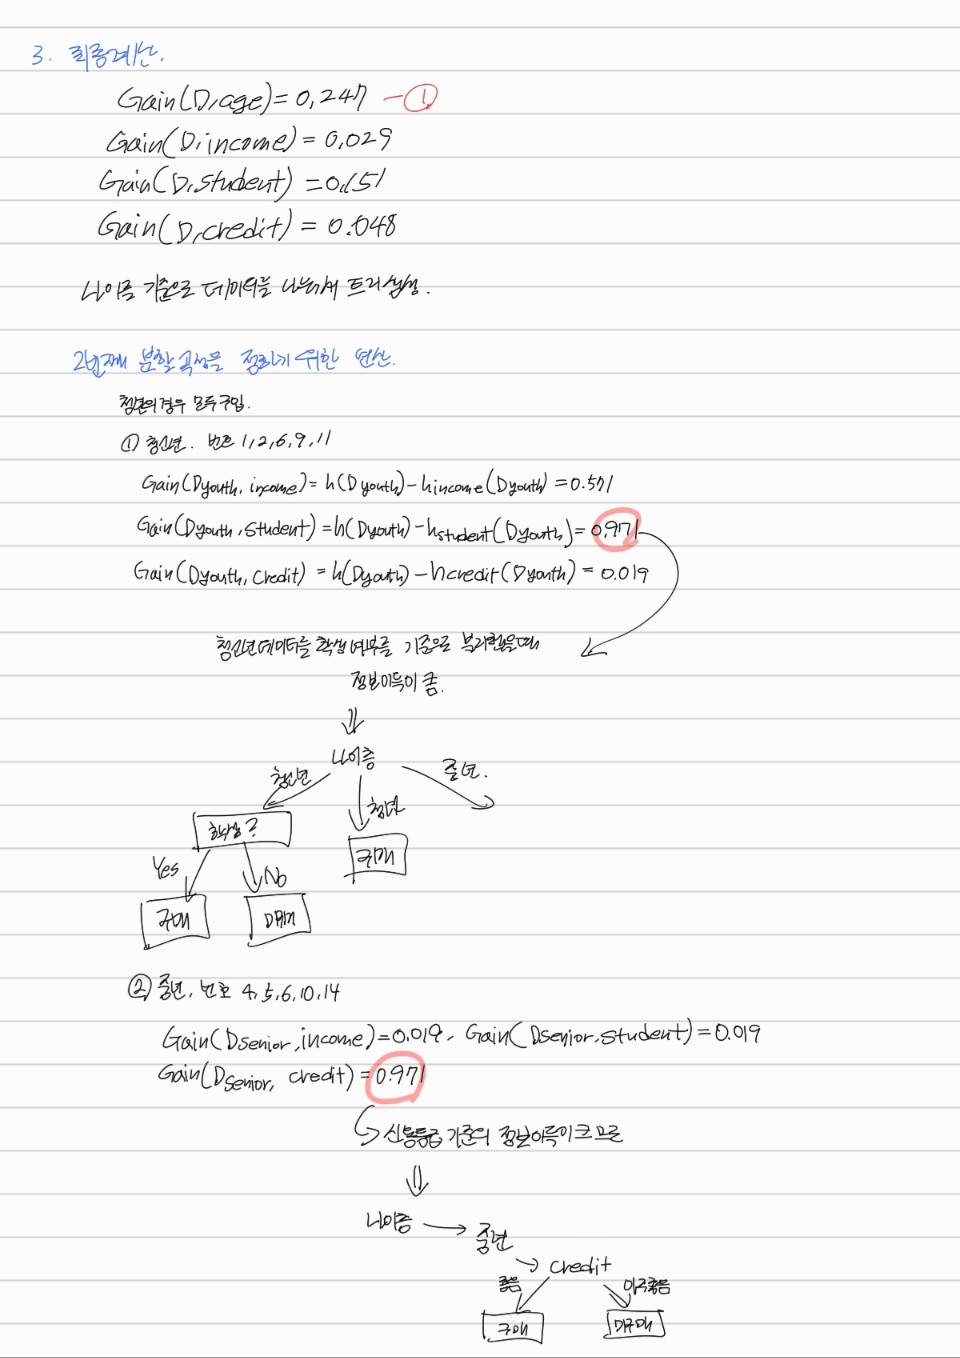 3. 최종계산.
Gain(D,age) = 0,247 - ①
Gain(D,income) = 0.029
Gain(D,student) = 0.151
Gain(D,credit) = 0.048
나이를 기준으로 데이터를 나눠서 트리 생성.
2번째 분할 속성을 정하기 위한 연산.
청년의 경우 모두 구입.
① 청소년. 번호 1,2,6,9,11
Gain(Dyouth, income) = h(Dyouth) - hincome(Dyouth) = 0.571
Gain(Dyouth, student) = h(Dyouth) - hstudent(Dyouth) = 0.971
Gain(Dyouth, credit) = h(Dyouth) - hcredit(Dyouth) = 0.019
청소년 데이터를 학생여부를 기준으로 분리했을때
정보이득이 큼.
⇓
나이층
청소년 청년 중년.
학생? 구매
Yes No
구매 미구매
② 중년, 번호 4,5,6,10,14
Gain(Dsenior,income) = 0.019, Gain(Dsenior,student) = 0.019
Gain(Dsenior, credit) = 0.971
신용등급 기준의 정보이득이 크므로
⇓
나이층 → 중년
→ credit
좋음 아주좋음
구매 미구매